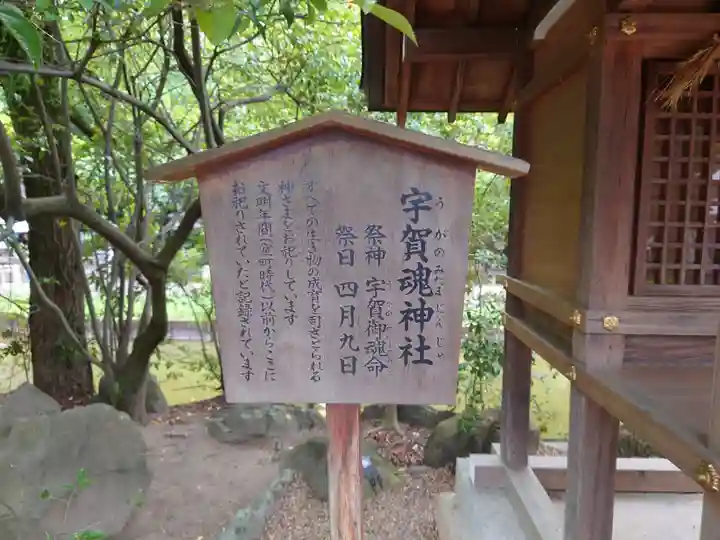 宇賀魂神社
うがのみたまじんじゃ
祭神 宇賀御魂命
祭日 四月九日
すべての生き物の成育を司さどられる
神さまをお祀りしています
文明年間(室町時代)以前からここに
お祀りされていたと記録されています